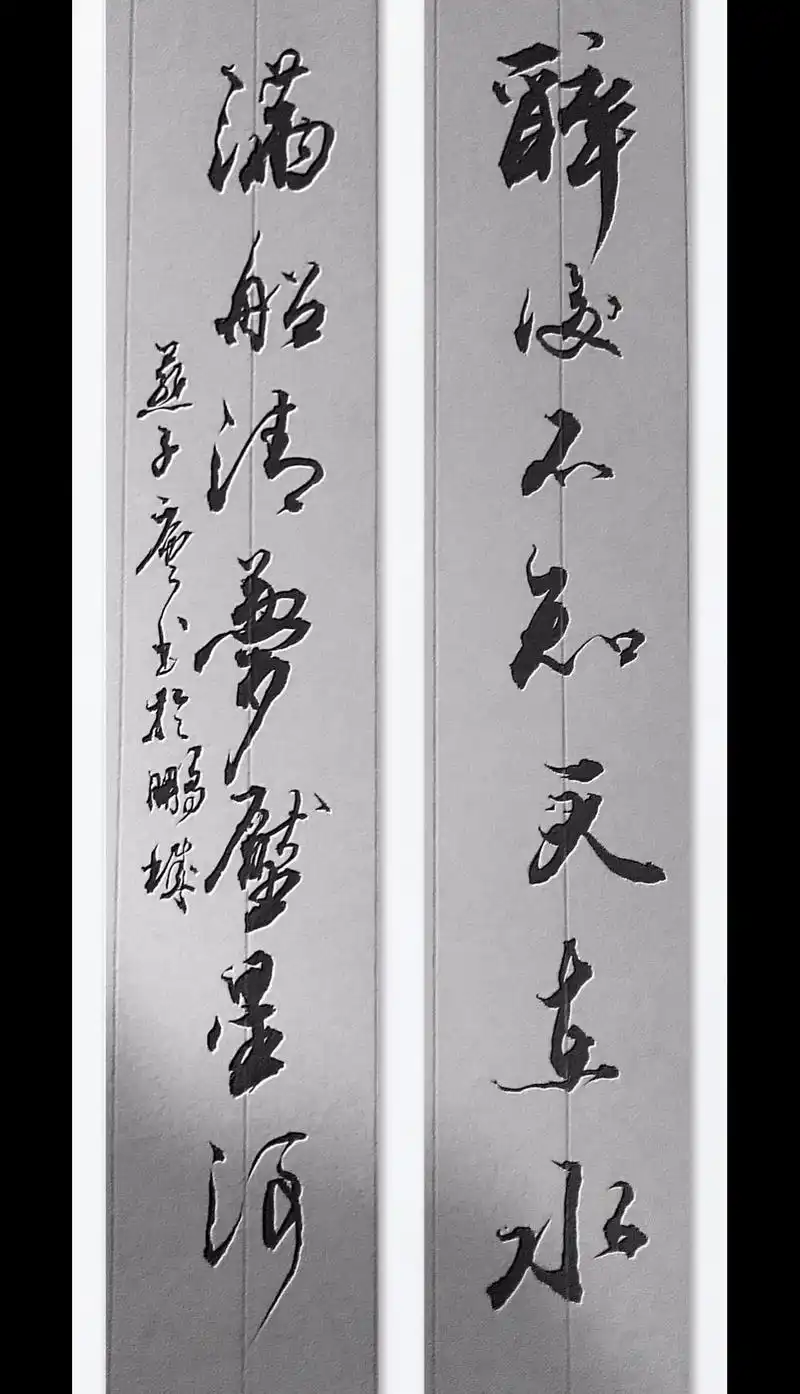 醉後不知天在水
滿船清夢壓星河
燕子廖书於鵬城